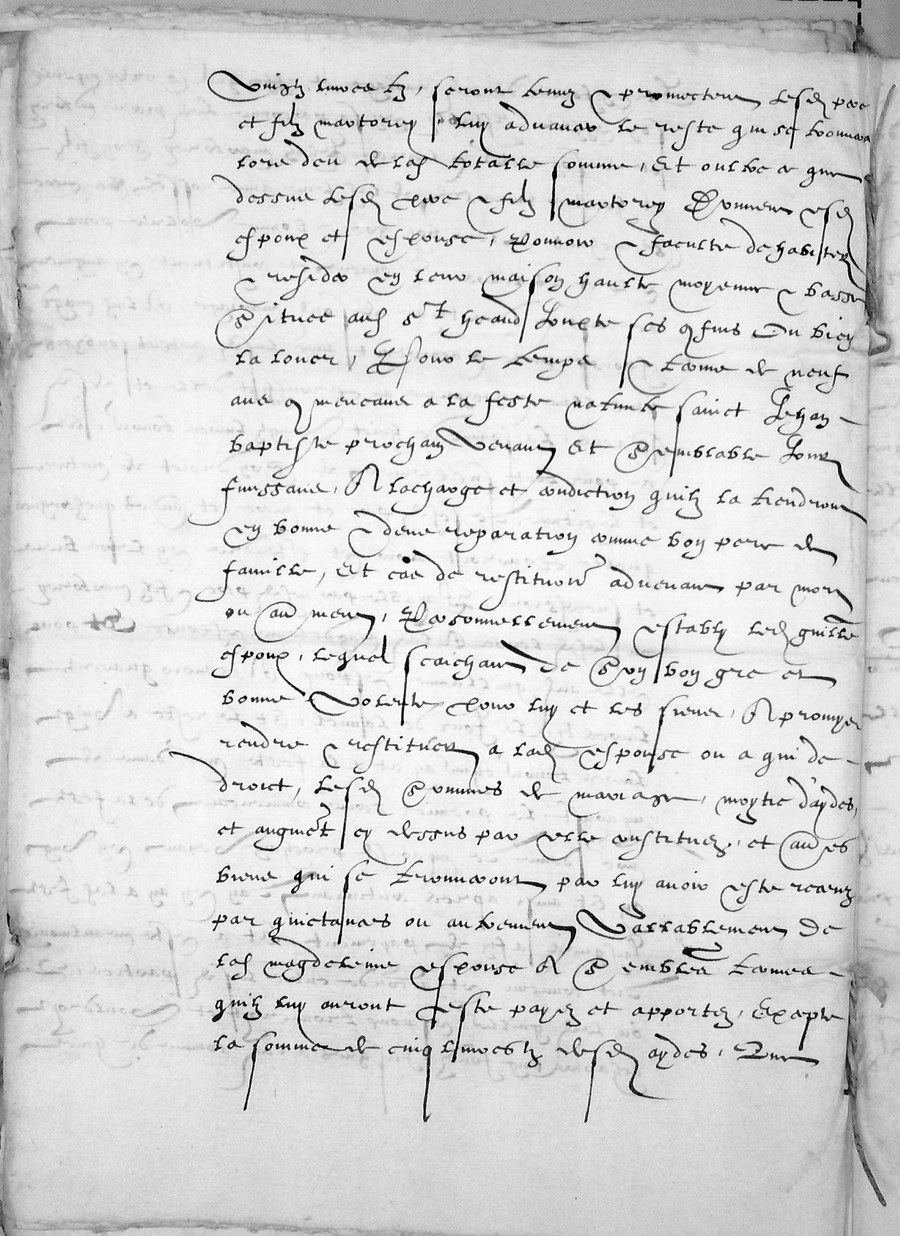 vingtz livres tz, seront tenuz & promecteren lesd pere
et filz martorey luy advancer le reste qui se trouvera
lors deu de lad totalle somme, Et oultre ce que
dessus lesd pere & filz martorey Donnent esd
espoux et espouse, Pouvoir & faculte de habiter
& resider en leur maison haulte moyenne & basse
Situee aud St heand Jouxte ses confins Ou bien
la louer, Pour le temps & terme de neuf
ans commencans a la feste nativite sainct Jehan
baptiste prochain venant Et Semblable Jour
finissans, A lacharge et condiction quilz la tiendront
en bonne & deue reparation comme bon pere de
famille, Et cas de restitution advenant par mort
ou aultrement, Personnellement estably led guillme
espoux, lequel scaichant de Son bon gre et
bonne volente pour luy et les siens, A promys
rendre & restituer a lad espouse ou a qui de
droict, lesd Sommes de mariage, moytie d'aydes,
et augmet cy dessus par elle constituez, et aultres
biens qui se trouveront par luy avoir este receuz
par quictances ou aultrement Vallablement de
lad magdeleine espouse A Semblables termes
quilz luy auront este payez et apportez, Excepte
la somme de cinq livres tz desd aydes, Que